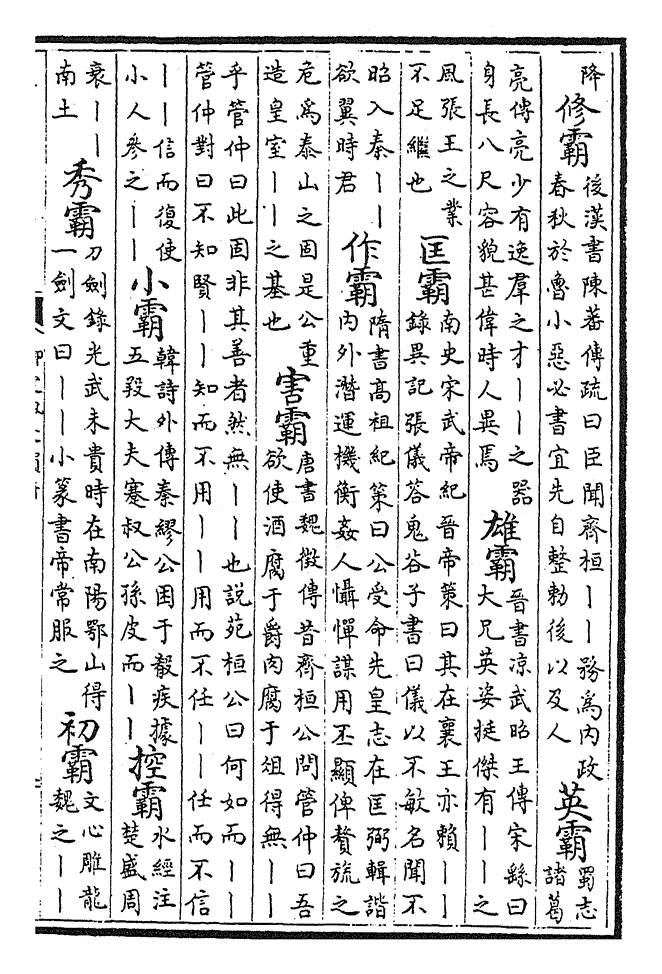 降
修霸
後漢書陳蕃傳疏曰臣聞齊桓丨丨務為內政
春秋於魯小惡必書宜先自整勅後以及人
英霸
蜀志
諸葛
亮傳亮少有逸羣之才丨丨之器
身長八尺容貌甚偉時人異焉
雄霸
晉書涼武昭王傳宋繇曰
大兄英姿挺傑有丨丨之
風張王之業
不足繼也
匡霸
南史宋武帝紀晉帝策曰其在襄王亦賴丨丨
錄異記張儀荅鬼谷子書曰儀以不敏名聞不
昭入秦丨丨
欲翼時君
作霸
隋書高祖紀策曰公受命先皇志在匡弼輯諧
内外潛運機衡姦人懾憚謀用丕顯俾贅旒之
危為泰山之固是公重
造皇室丨丨之基也
害霸
唐書魏徵傳昔齊桓公問管仲曰吾
欲使酒腐于爵肉腐于俎得無丨丨
乎管仲曰此固非其善者然無丨丨也說苑桓公曰何如而丨丨
管仲對曰不知賢丨丨知而不用丨丨用而不任丨丨任而不信
丨丨信而復使
小人參之丨丨
小霸
韓詩外傳秦繆公困于殽疾據
五羖大夫蹇叔公孫皮而丨丨
控霸
水經注
楚盛周
衰丨丨
南土
秀霸
刀劍錄光武未貴時在南陽鄂山得
一劍文曰丨丨小篆書帝常服之
初霸
文心雕龍
魏之丨丨